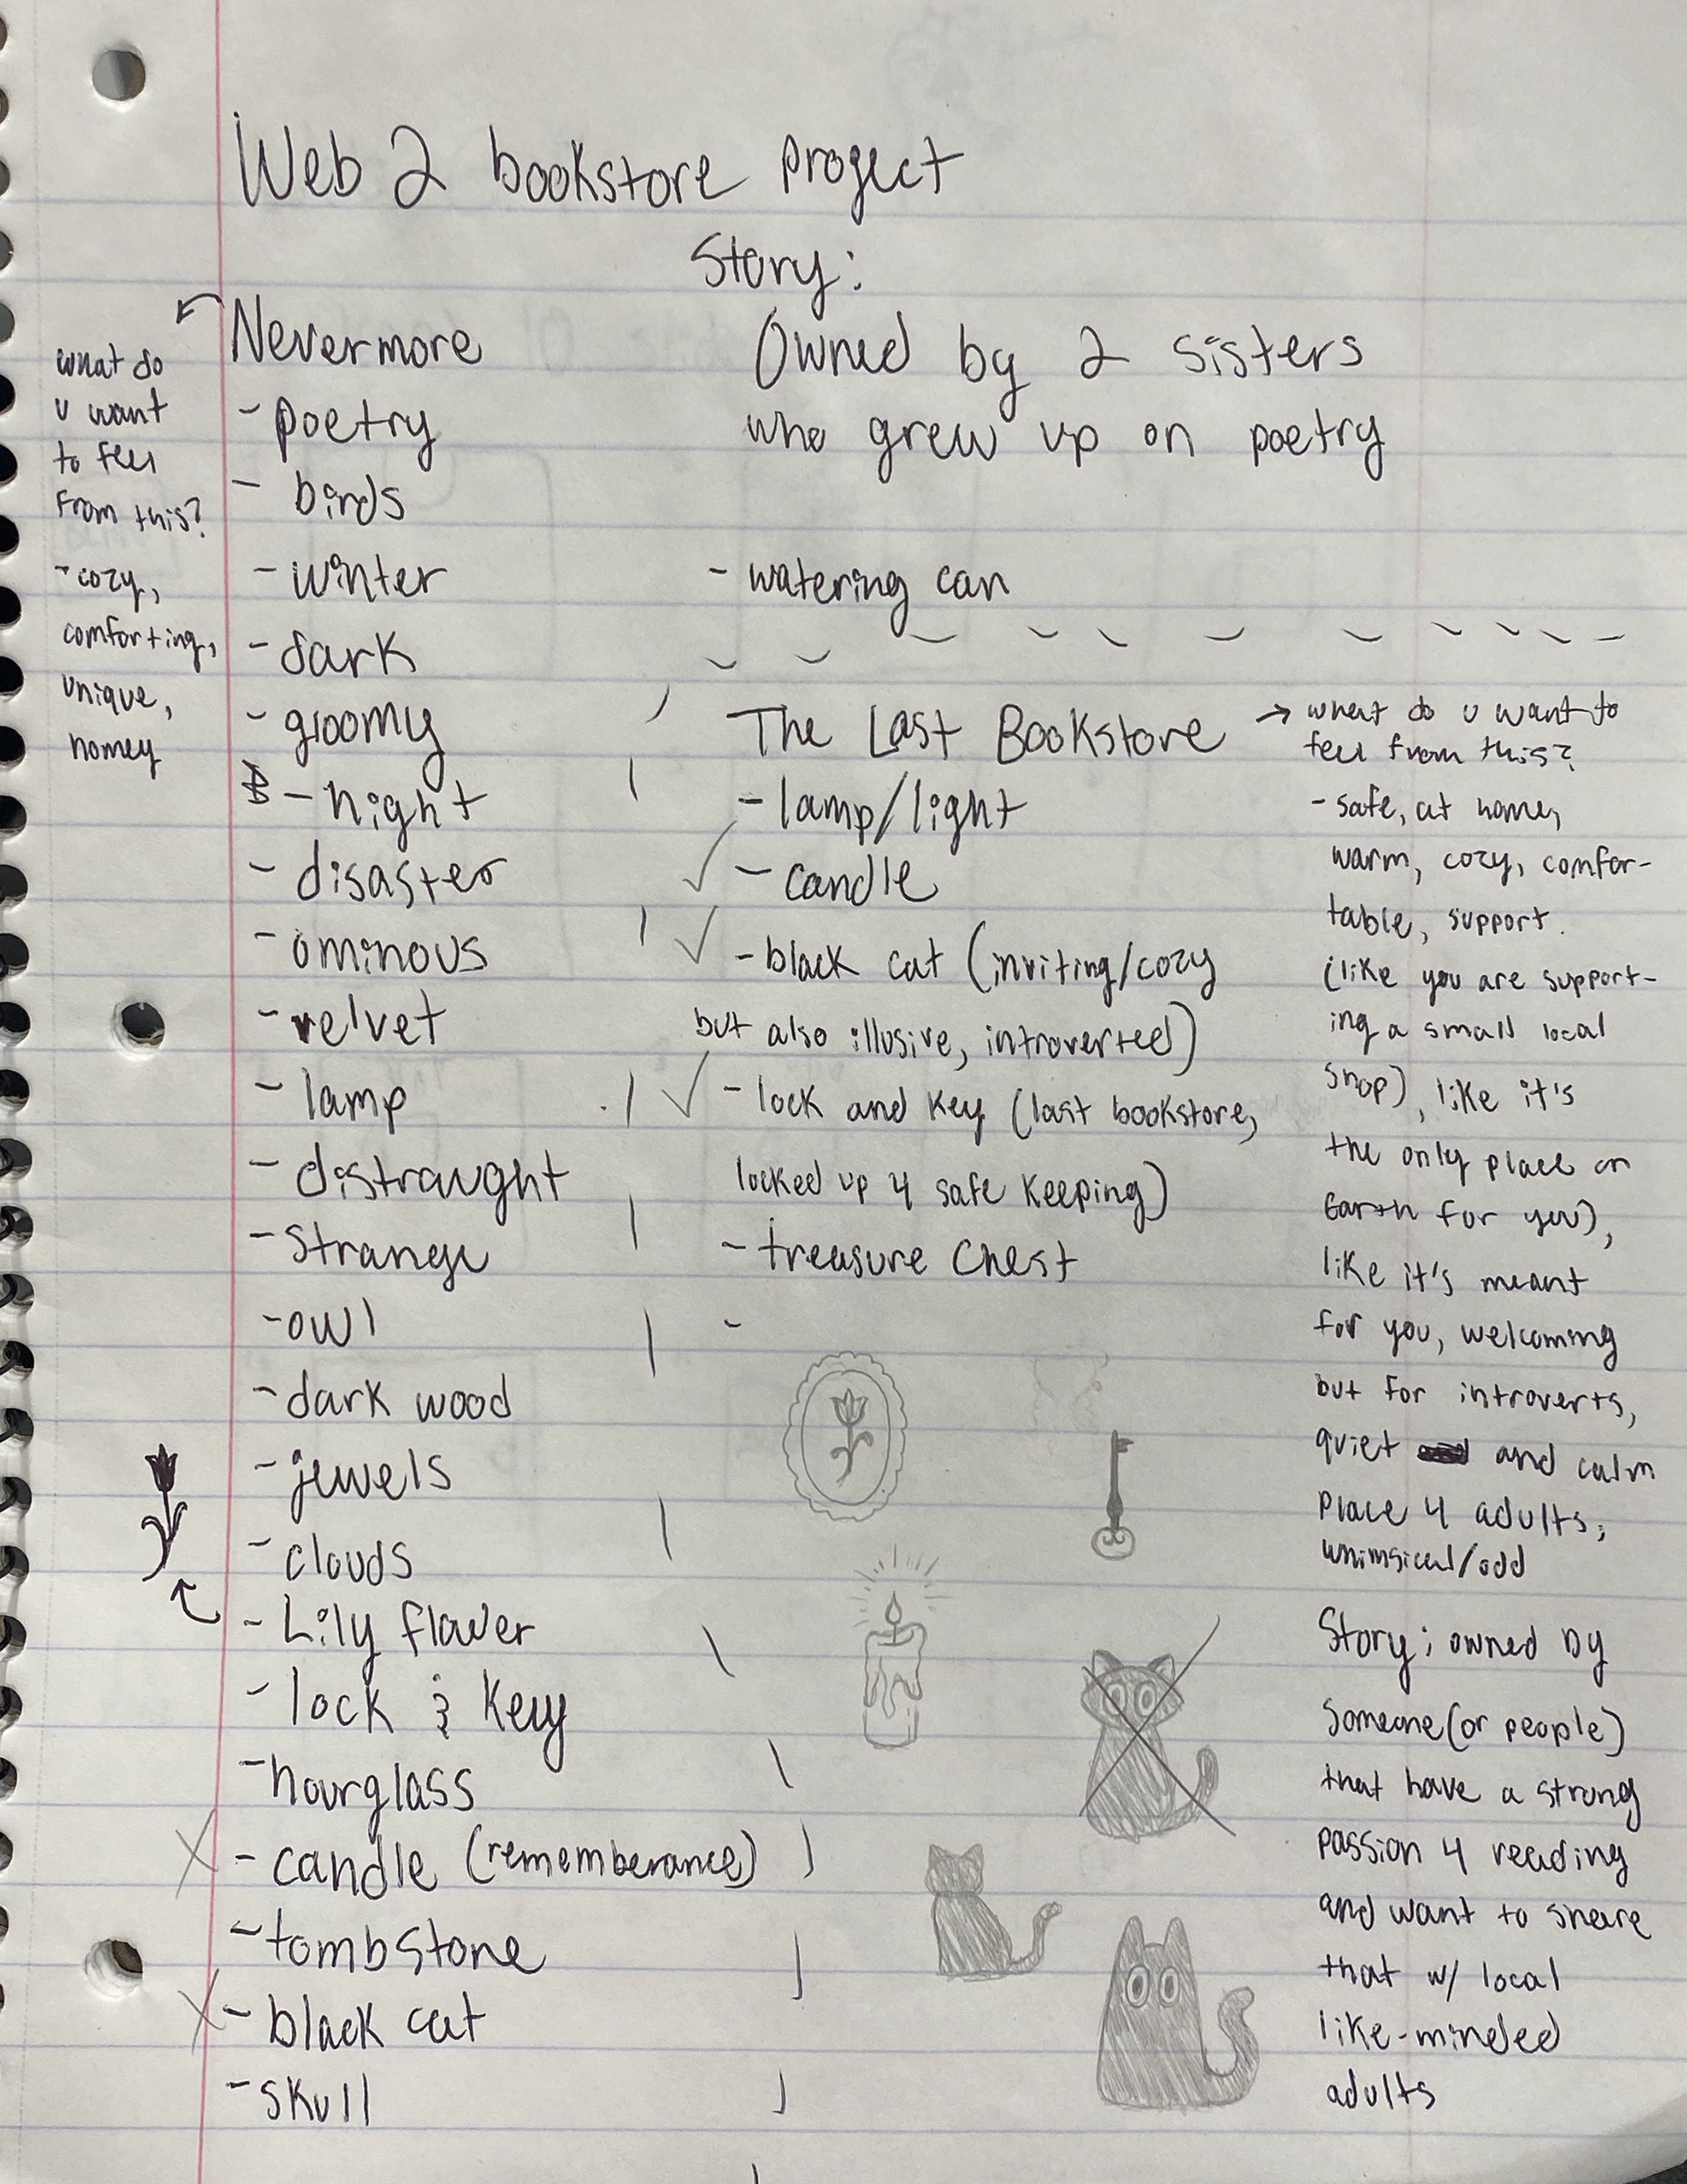 Web 2 bookstore project
Nevermore
what do
u want
to feel
from this?
- cozy,
comforting,
unique,
homey
- poetry
- birds
- winter
- dark
- gloomy
- night
- disaster
- ominous
- velvet
- lamp
- distraught
- strange
- owl
- dark wood
- jewels
- clouds
- Lily flower
- lock & key
- hourglass
- candle (rememberance)
- tombstone
- black cat
- skull
Story:
Owned by 2 sisters
who grew up on poetry
- watering can
The Last Bookstore
- lamp/light
- candle
- black cat (inviting/cozy
but also illusive, introverted)
- lock and key (last bookstore,
locked up 4 safe keeping)
- treasure chest
-
→ what do u want to
feel from this?
- safe, at home,
warm, cozy, comfor-
table, support.
(like you are support-
ing a small local
shop), like it's
the only place on
Earth for you),
like it's meant
for you, welcoming
but for introverts,
quiet and calm
place 4 adults,
whimsical/odd
Story: owned by
someone (or people)
that have a strong
passion 4 reading
and want to share
that w/ local
like-minded
adults